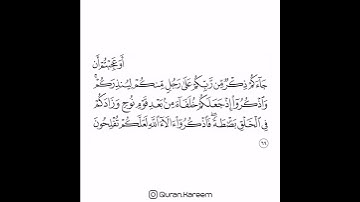 أَوَعَجِبْتُمْ أَن
جَآءَكُمْ ذِكْرٌ مِّن رَّبِّكُمْ عَلَىٰ رَجُلٍ مِّنكُمْ لِيُنذِرَكُمْ ۚ
وَٱذْكُرُوٓا۟ إِذْ جَعَلَكُمْ خُلَفَآءَ مِنۢ بَعْدِ قَوْمِ نُوحٍ وَزَادَكُمْ
فِى ٱلْخَلْقِ بَصْۜطَةً ۖ فَٱذْكُرُوٓا۟ ءَالَآءَ ٱللَّهِ لَعَلَّكُمْ تُفْلِحُونَ
٦٩
Quran.Kareem